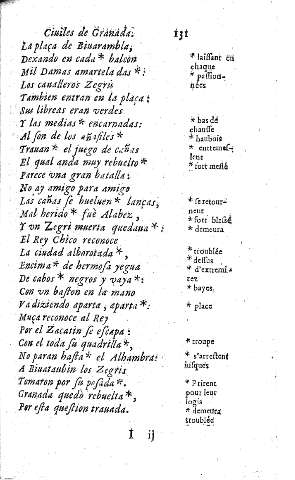 Ciuiles de Granada. 131
La plaça de Biuarrambla,
Dexando en cada * balcon * laissant en chaque
Mil Damas amarteladas *: * passionnées
Los caualleros Zegris
Tambien entran en la plaça:
Sus libreas eran verdes
Y las medias * encarnadas: * bas de chausse
Al son de los añafiles * * hauboïs
Trauan * el juego de cañas * entremeslent
El qual anda muy rebuelto * * fort meslé
Parece vna gran batalla:
No ay amigo para amigo
Las cañas se bueluen * lanças, * se retournent
Mal herido * fuè Alabez, * fort blessé
Y vn Zegri muerta quedana *: * demeura
El Rey Chico reconoce
La ciudad alborotada *, * troublée
Encima * de hermosa yegua * dessus
De cabos * negros y vaya *: * d'extremitez
Con vn baston en la mano * bayes
Va diziendo aparta, aparta *: * place
Muça reconoce al Rey
Por el Zacatin se escapa:
Con el toda su quadrilla *, * troupe
No paran hasta * el Alhambra: * s'arrestent jusques
A Biuataubin los Zegris
Tomaron por su posada *. * Prirent pour leur logis
Granada quedo rebuelta *, * demeura troublée
Por esta question trauada.
I ij